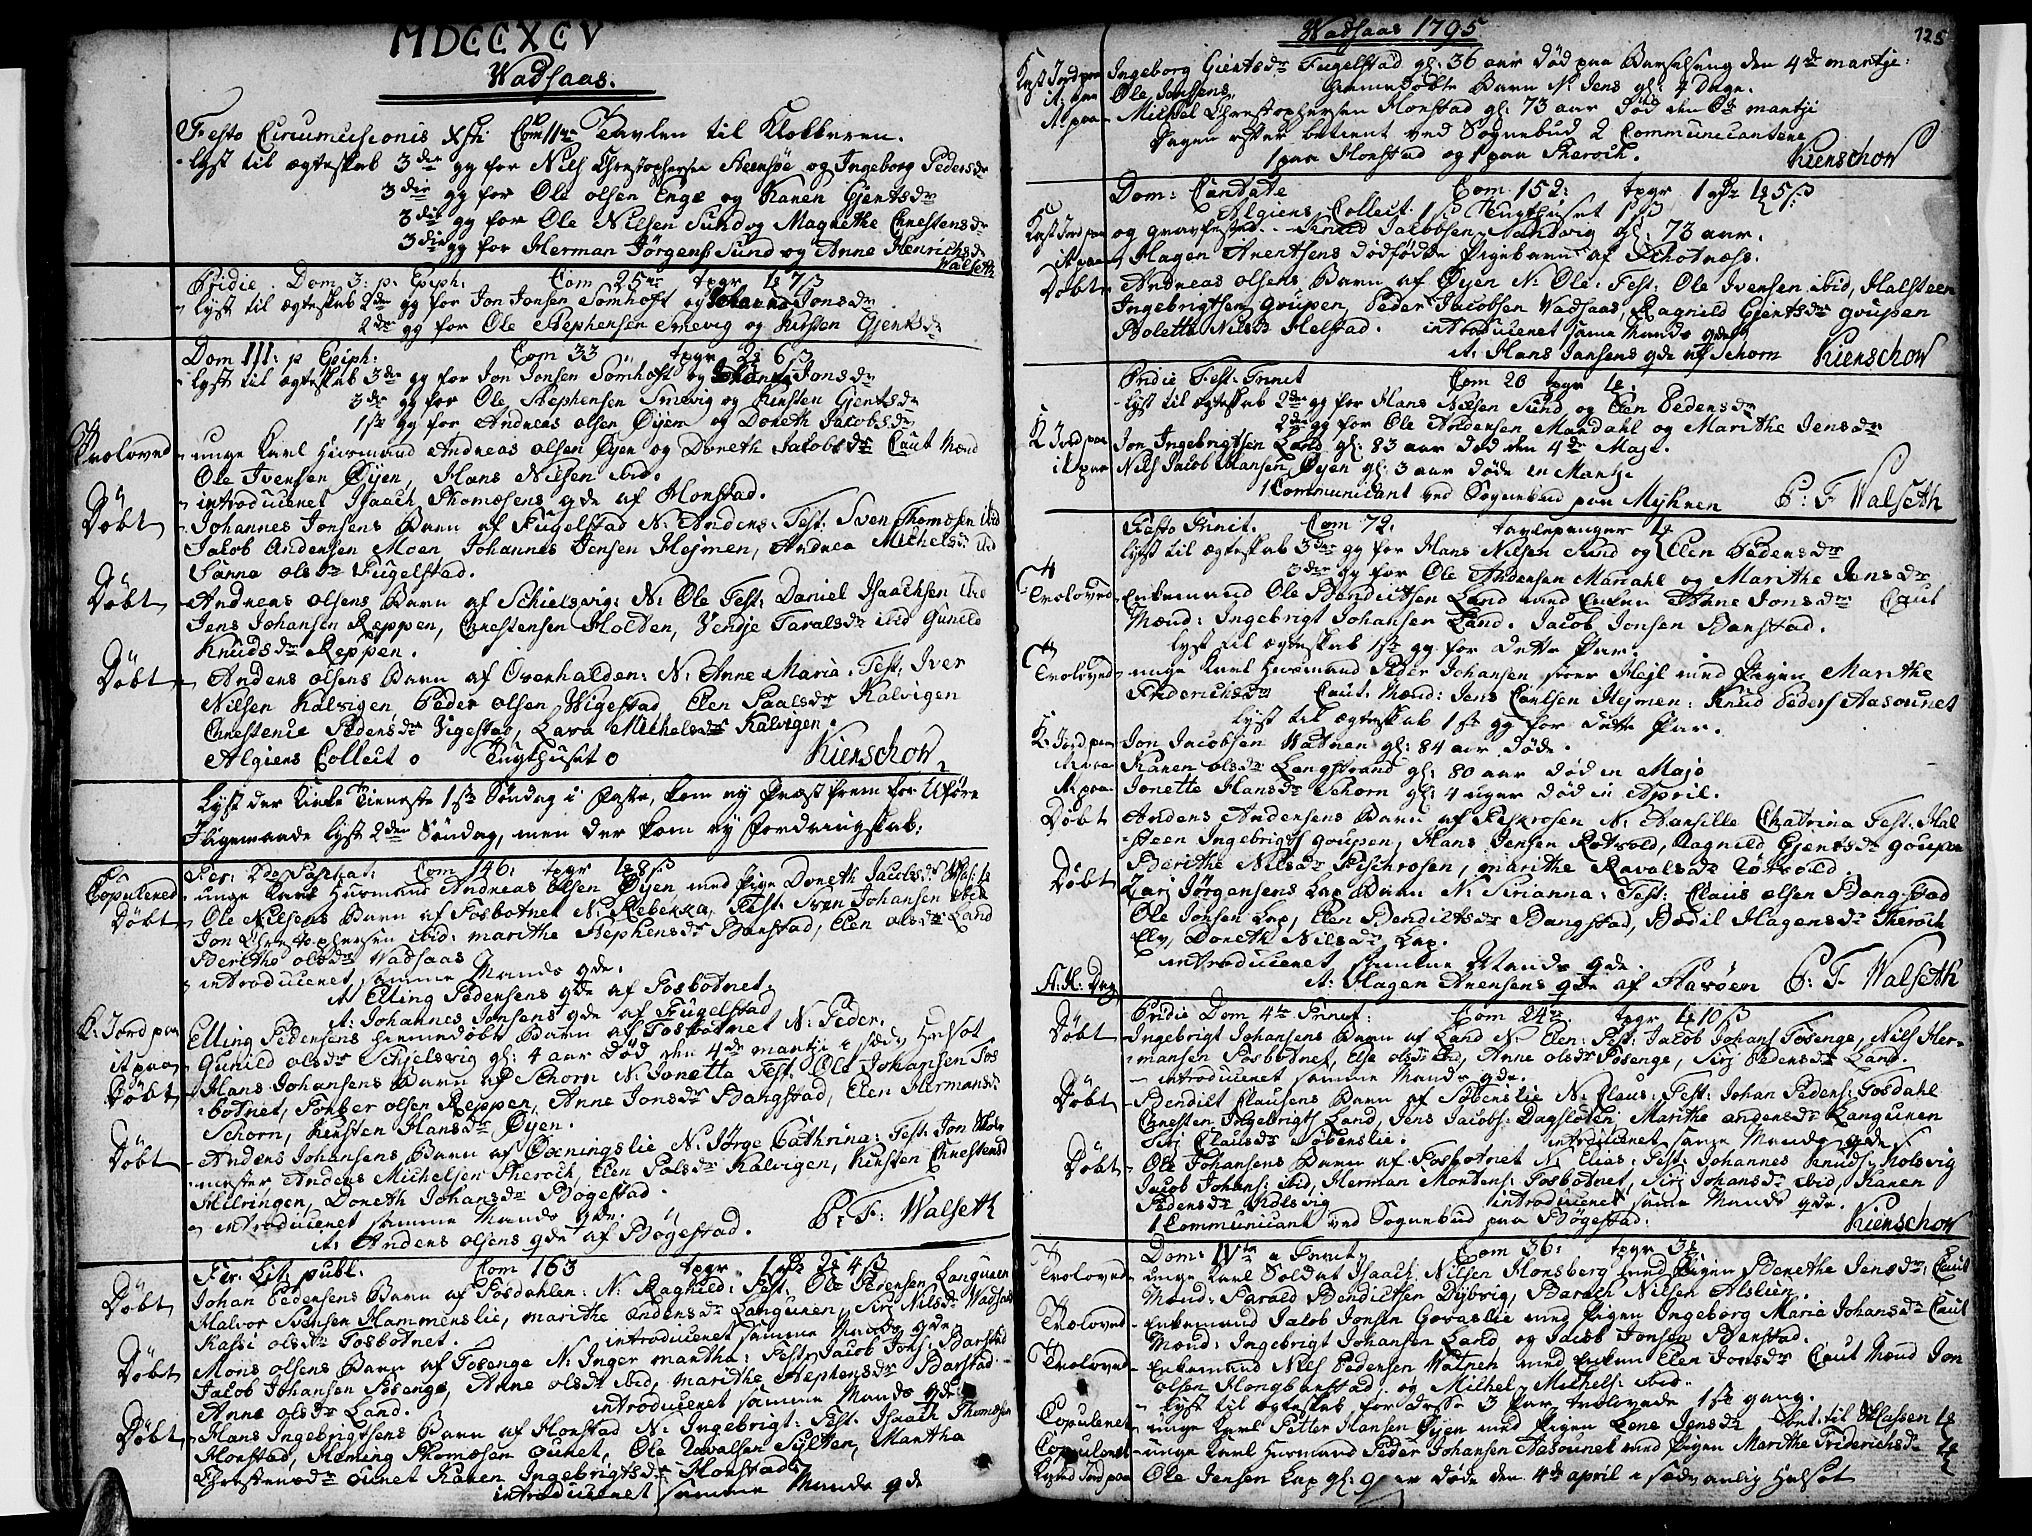 MDCCXCV
Wadsaas.
Festo Circumcisionis Xsti Com 11 Tavlen til Klokkeren.
lyst til ægteskab 3die gg for Nils Christophersen og Ingeborg Pedersdr
3die gg for Ole Olsen Enge og Karen Gjertsdr
3die gg for Ole Nilsen Sund og Magrethe Christensdr
3die gg for Herman Jörgens Sund og Anne Henrichsdr
Walseth
Pridie Dom 3: p. Epiph: Com 25 tpgr 1 7 ß
lyst til ægteskab 2de gg for Jon Jonsen Sömhoft og Johanna Jonsdr
2de gg for Ole Stephensen Smevig og Kirsten Gjertsdr
Dom III: p Epiph: Com 33 tpgr 2 6 ß
lyst til ægteskab 3die gg for Jon Jonsen Sömhoft og Johanna Jonsdr
3die gg for Ole Stephensen Smevig og Kirsten Gjertsdr
1ste gg for Andreas olsen Öyen og Doreth Jacobsdr
Troloved unge Karl Andreas olsen Öyen og Doreth Jacobsdr Caut Mænd
Ole Iversen Öyen, Hans Nilsen ibid.
introduceret Isaach Thomæsens qde af Honstad.
Döbt Johannes Jonsens Barn af Fugelstad N: Anders: Test: Sven Thomæsen ibid
Jacob Andersen Moen Johannes Jensen Hejmen, Andrea Michelsdr ibid
Sanna olsdr Fugelstad.
Döbt Andreas olsens Barn af Schielsvig: N: Ole Test: Daniel Isaachsen ibid
Jens Johansen Reppen, Christensen Holden, Vendje Taralsdr ibid Gunild
Knudsdr Reppen.
Döbt Anders olsens Barn af Overhalden: N: Anne Maria: Test: Iver
Nilsen Kalvigen Peder olsen Wigestad, Elen Paalsdr Kalvigen
Christenie Pedersdr Vigestad, Lava Michelsdr Kalvigen.
Algiers Collect 0 Tugthuset 0 Kierschow
lyst der Kirke Tieneste 1ste Söndag i Faste, kom ey Præst frem for Uföre
Iligemaade lyst 2den Söndag, men der kom ey
Fer: 2da Paschat: Com 146: tpgr 1 8 ß
Copulered unge Karl Andreas olsen Öyen med Pige Doreth Jacobsdr
Döbt Ole Nilsens Barn af Fosbotnet N: Rebekka, Test: Sven Johansen ibid
Jon Christophersen ibid: marithe Stephensdr Barstad, Elen olsdr Land
Berithe olsdr Wadsaas
introduceret samme Mands qde.
it Elling Pedersens qde af Fosbotnet.
it Johannes Jonsens qde af Fugelstad
K: Jord paa Elling Pedersens hiemmedöbt Barn af Fosbotnet N: Peder.
it paa Gunild olsdr Schjelsvig gl: 4 aar död den 4de martji
Döbt Hans Johansens Barn af Schorn N: Jonetta Test: Ole Johansen Fos
botnet, Torber olsen Reppen, Anne Jonsdr Bangstad, Elen Hermansdr
Schorn, Kirsten Hansdr Öyen.
Döbt Anders Johansens Barn af N: Jörge Cathrina: Test: Jon
mester Anders Michelsen Theroch, Elen Paalsdr Kalvigen, Kirsten Christensd
Hilringen, Doreth Johansdr Bögestad.
introduceret samme Mands qde.
it Anders olsens qde af Bögestad. P: F: Walseth
Fer: Lit: publ: Com 163 tpgr 1 2 4 ß
Döbt Johan Pedersens Barn af Fosdahlen: N: Ragnild: Test: Ole Langunen
Halvor Iversen Hammerslie, marithe Andersdr Langunen, Siri Nilsdr Wadsaas
Kassi olsdr Fosbotnet. introduceret samme Mands qde.
Döbt Mons olsens Barn af Fosenge N: Inger martha: Test: Jacob Johs: Barstad
Jacob Johansen Fosenge, Anne olsdr ibid, marithe Stephensdr Barstad
Anne olsdr Land. introduceret samme Mands qde
Döbt Hans Ingebrigtsens Barn af Honstad N: Ingebrigt: Test: Isaach Thomæsen
Honstad, Heming Thomæsen ounet, Ole Zavalsen Sylten, Martha
Christensdr ounet Karen Ingebrigtsdr Honstad
introduceret samme Mands qde
Wadsaas 1795
125
Kast Jord paa Ingeborg Giertsdr Fugelstad gl: 36 aar död paa Barselseng den 4de martje:
it. paa Ole Jonsens hiemmedöbte Barn N: Jens gl: 4 Dage.
it paa Michel Christophersen Honstad gl: 73 aar död den martji
Dagen efter betient ved Sognebud 2 Communicantere
1 paa Honstad og 1 paa Theroch. Kierschow
Dom: Cantate Com 152: tpgr 1 1 5 ß
Algiers Collect Tugthuset
Kast Jord paa og gravfested Knud Jacobsen Sandvig gl: 73 aar.
it paa Hagen Arentsens dödfödte Pigebarn af Schotnæss.
Döbt Andreas olsens Barn af Öyen N: Ole: Test: Ole Iversen ibid, Halsteen
Ingebrigtsen goupen, Peder Jacobsen Vadsaas, Ragnild Gjertsdr goupen
Bolette Nilsdr Helstad. introduceret same Mands qde
it: Hans Jansens qde af Schorn Kierschow
Pridie Fest: Trinit Com 20 tpgr 1
lyst til ægteskab 2de gg for Hans Nielsen Sund og Elen Pedersdr
2de gg for Ole Andersen Mardahl og Marithe Jensdr
K. Jord paa Jon Ingebrigtsen Land gl: 83 aar död den 4de Maji.
it paa Nils Jacob Hansen Öyen gl: 3 aar döde in Martji
1 Communicant ved Sognebud paa Myhren P: F Walseth
Festo Trinit. Com 72. tavlepenger
lyst til ægteskab 3die gg for Hans Nilsen Sund og Elen Pedersdr
3die gg for Ole Andersen Mardahl og Marithe Jensdr
Troloved Enkemand Ole Bendictsen Land med Enken Anne Jonsdr Caut
Mænd: Ingebrigt Johansen Land. Jacob Jonsen Barstad.
lyst til ægteskab 1ste gg for dette Par.
Troloved unge Karl Peder Johansen med Pigen Marithe
Friderichsdr Caut: Mænd: Jens Carlsen Hejmen: Knud Peders Aasounet
lyst til ægteskab 1ste gg for dette Par.
K: Jord paa Jon Jacobsen Watnen gl: 84 aar döde.
it paa Karen olsdr Langstrand gl: 80 aar död in Majo
it paa Jonette Hansdr Schorn gl: 4 uger död in April.
Döbt Anders Andersens Barn af Fiskrosen N: Chatrina Test: Hal
steen Ingebrigts goupen, Hans Jensen Rotvold, Ragnild Gjertsdr goupen
Berithe Nilsdr Fischrosen, marithe Ravalsdr Rotvold
Döbt Zari Jörgensens Lap Barn N: Sirianna: Test: Claus olsen Bangstad
Ole Jonsen Lap, Elen Bendictsdr Bangstad, Bodil Hagensdr Theroch
Elv, Doreth Nilsdr Lap.
introduceret samme Mands qde.
it: Hagen Arensens qde af Haröen P: F. Walseth
Döbt Pridie Dom 4te Trinit: Com 24 tpgr 1 10 ß
Ingebrigt Johansens Barn af Land N: Elen: Test: Jacob Johans Fosenge, Nils Her-
mansen Fosbotnet, Else olsdr ibid, Anne olsdr Fosenge, Siri Pedersdr Land.
introduceret samme Mands qde.
Döbt Bendict Clausens Barn af Söbenslie N: Claus: Test: Johan Peders: Fosdahl
Christen Ingebrigts Land, Jens Jacobs: Dagsloten Marithe andersdr Langunen
Siri Clausdr Söbenslie. introduceret same Mands qde
Döbt Ole Johansens Barn af Fosbotnet N: Elias: Test: Johannes Knuds: Kolsvig
Jacob Johans: ibid, Herman Mortens: Fosbotnet, Siri Johansdr ibid, Karen
Pedersdr Kolsvig introduceret same Mands qde.
1 Communicant ved Sognebud paa Bögestad: Kierschow
Dom: IV Trinit. Com 36: tpgr 3
Troloved unge Karl Soldat Isaach Nilsen Honsberg med Pigen Berethe Jensdr: Caut
Mænd: Tarald Bendictsen Dybvig, Baroch Nilsen Alslien.
Troloved Enkemand Jacob Jonsen Govaslie med Pigen Ingeborg Marie Johansdr Caut
Mænd: Ingebrigt Johansen Land, og Jacob Jonsen Barstad.
Trolovet Enkemand Nils Pedersen Watnen med Enken Elen Jonsdr Caut Mænd Jon
olsen Kongbarstad, og Michel Michels: ibid.
lyst til ægteskab for disse 3 Par trolovede 1ste gang.
Copuleret unge Karl Petter Hansen Öyen med Pigen Lene Jensdr til Cassen 1
Copuleret unge Karl Peder Johansen Aasounet med Pigen Marithe Friderichsdr
Kasted Jord paa Ole Jensen Lap gl: 9 aar döde den 4de april i sædvanlig